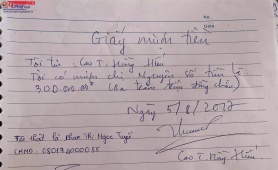 Giấy mượn tiền
Tôi tên: Cao T. Hồng Hiếu
Tôi có mượn chị Nguyên số tiền là
300.000.00đ (ba trăm triệu đồng chẵn)
Ngày 5/8/2022
Tôi thật là Phan Thị Ngọc Tuyết
CMND: 080174000055
Cao T. Hồng Hiếu